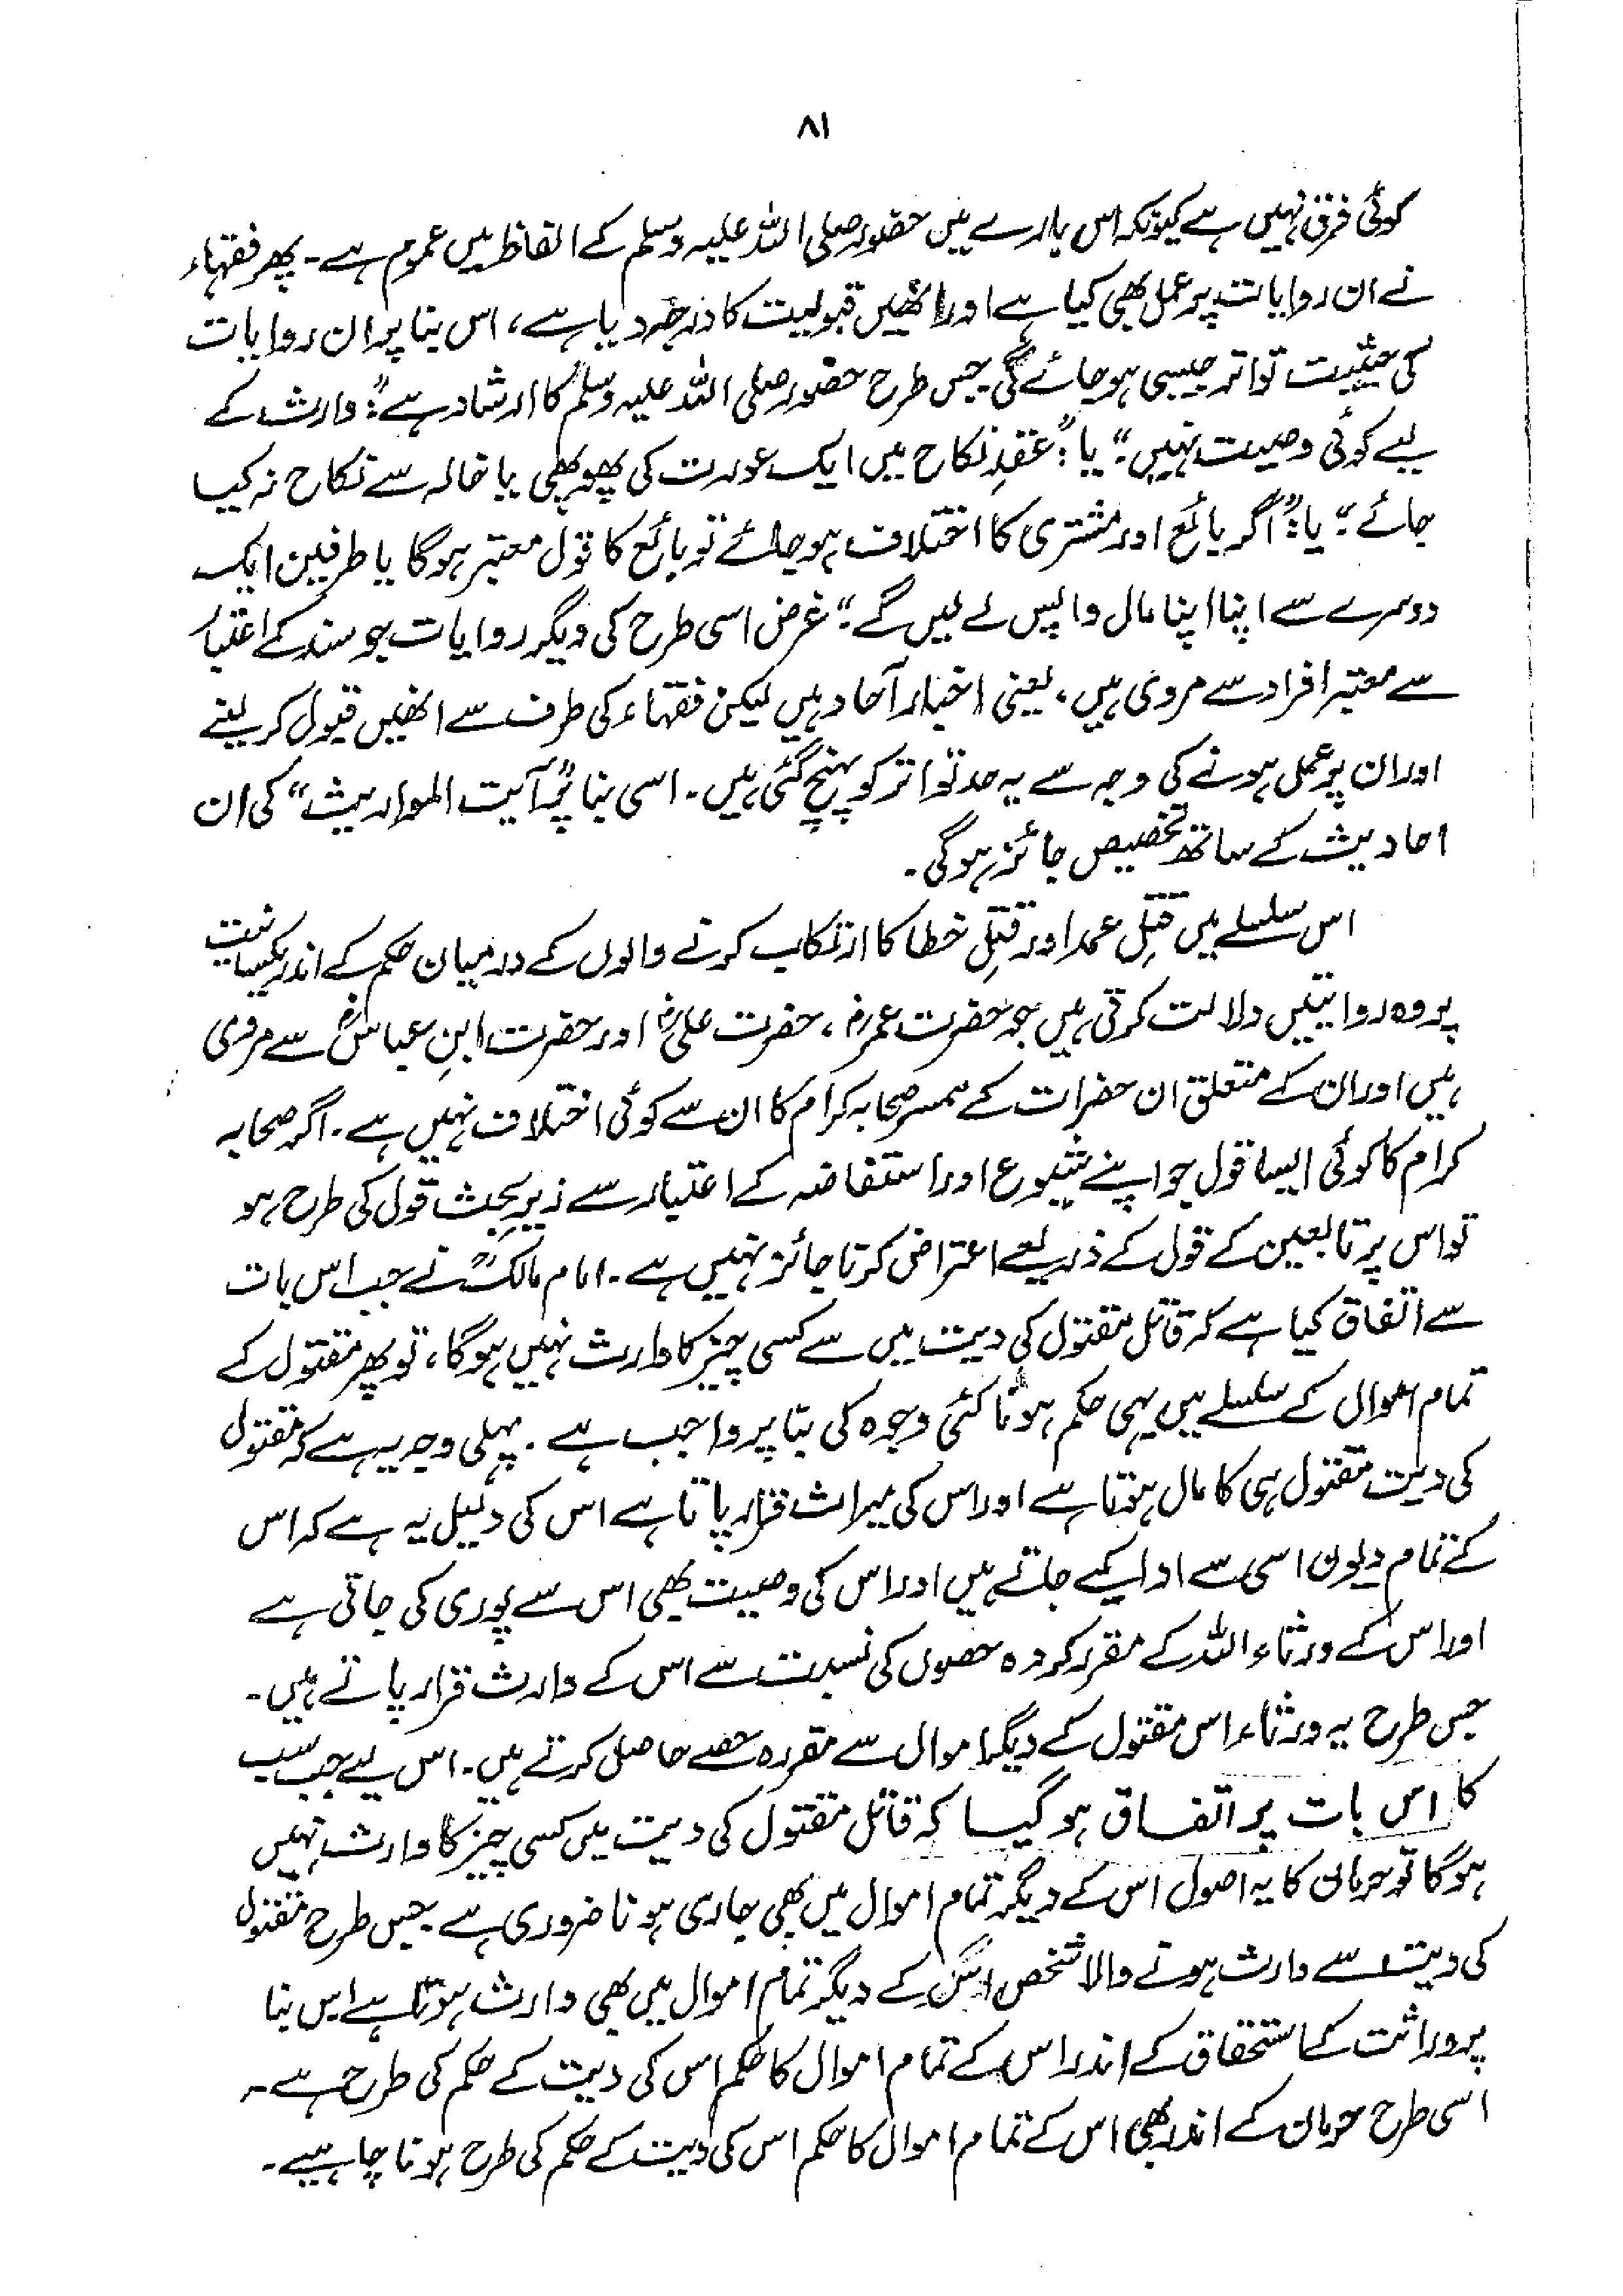 ۸۱
کوئی فرق نہیں ہے کیونکہ اس بارے میں حضور صلی اللہ علیہ وسلم کے الفاظ میں عموم ہے۔ پھر فقہاء
نے ان روایات پر عمل بھی کیا ہے اور انھیں قبولیت کا درجہ دیا ہے، اس بنا پر ان روایات
کی حیثیت تواتر جیسی ہو جائے گی۔ جس طرح حضور صلی اللہ علیہ وسلم کا ارشاد ہے: "وارث کے
لیے کوئی وصیت نہیں۔" یا: "عقدِ نکاح میں ایک عورت کی پھوپھی یا خالہ سے نکاح نہ کیا
جائے" یا: "اگر بائع اور مشتری کا اختلاف ہو جائے تو بائع کا قول معتبر ہوگا یا طرفین ایک
دوسرے سے اپنا اپنا مال واپس لے لیں گے۔" غرض اسی طرح کی دیگر روایات جو سند کے اعتبار
سے معتبر افراد سے مروی ہیں، یعنی اخبار آحاد ہیں لیکن فقہاء کی طرف سے انھیں قبول کر لینے
اور ان پر عمل ہونے کی وجہ سے یہ حد تواتر کو پہنچ گئی ہیں۔ اسی بنا پر "آیت المواریث" کی ان
احادیث کے ساتھ تخصیص جائز ہوگی۔
اس سلسلے میں قتلِ عمد اور قتلِ خطا کا ارتکاب کرنے والوں کے درمیان حکم کے اندر یکسانیت
پر وہ روایتیں دلالت کرتی ہیں جو حضرت عمرؓ، حضرت علیؓ اور حضرت ابنِ عباسؓ سے مروی
ہیں اور ان کے متعلق ان حضرات کے ہمسر صحابہ کرام کا ان سے کوئی اختلاف نہیں ہے۔ اگر صحابہ
کرام کا کوئی ایسا قول جو اپنے شیوع اور استفاضہ کے اعتبار سے زیرِ بحث قول کی طرح ہو
تو اس پر تابعین کے قول کے ذریعے اعتراض کرنا جائز نہیں ہے۔ امام مالکؒ نے جب اس بات
سے اتفاق کیا ہے کہ قاتل مقتول کی دیت میں سے کسی چیز کا وارث نہیں ہوگا، تو پھر مقتول کے
تمام اموال کے سلسلے میں یہی حکم ہونا کئی وجوہ کی بنا پر واجب ہے۔ پہلی وجہ یہ ہے کہ مقتول
کی دیت مقتول ہی کا مال ہوتا ہے اور اس کی میراث قرار پاتا ہے اس کی دلیل یہ ہے کہ اس
کے تمام دیون اسی سے ادا کیے جاتے ہیں اور اس کی وصیت بھی اس سے پوری کی جاتی ہے
اور اس کے ورثاء اللہ کے مقرر کردہ حصوں کی نسبت سے اس کے وارث قرار پاتے ہیں۔
جس طرح یہ ورثاء اس مقتول کے دیگر اموال سے مقررہ حصے حاصل کرتے ہیں۔ اس لیے جب سب
کا اس بات پر اتفاق ہو گیا کہ قاتل مقتول کی دیت میں کسی چیز کا وارث نہیں
ہوگا تو حرمان کا یہ اصول اس کے دیگر تمام اموال میں بھی جاری ہونا ضروری ہے جس طرح مقتول
کی دیت سے وارث ہونے والا شخص اس کے دیگر تمام اموال میں بھی وارث ہوتا ہے اس بنا
پر وراثت کے استحقاق کے اندر اس کے تمام اموال کا حکم اس کی دیت کے حکم کی طرح ہے۔
اسی طرح حرمان کے اندر بھی اس کے تمام اموال کا حکم اس کی دیت کے حکم کی طرح ہونا چاہیے۔